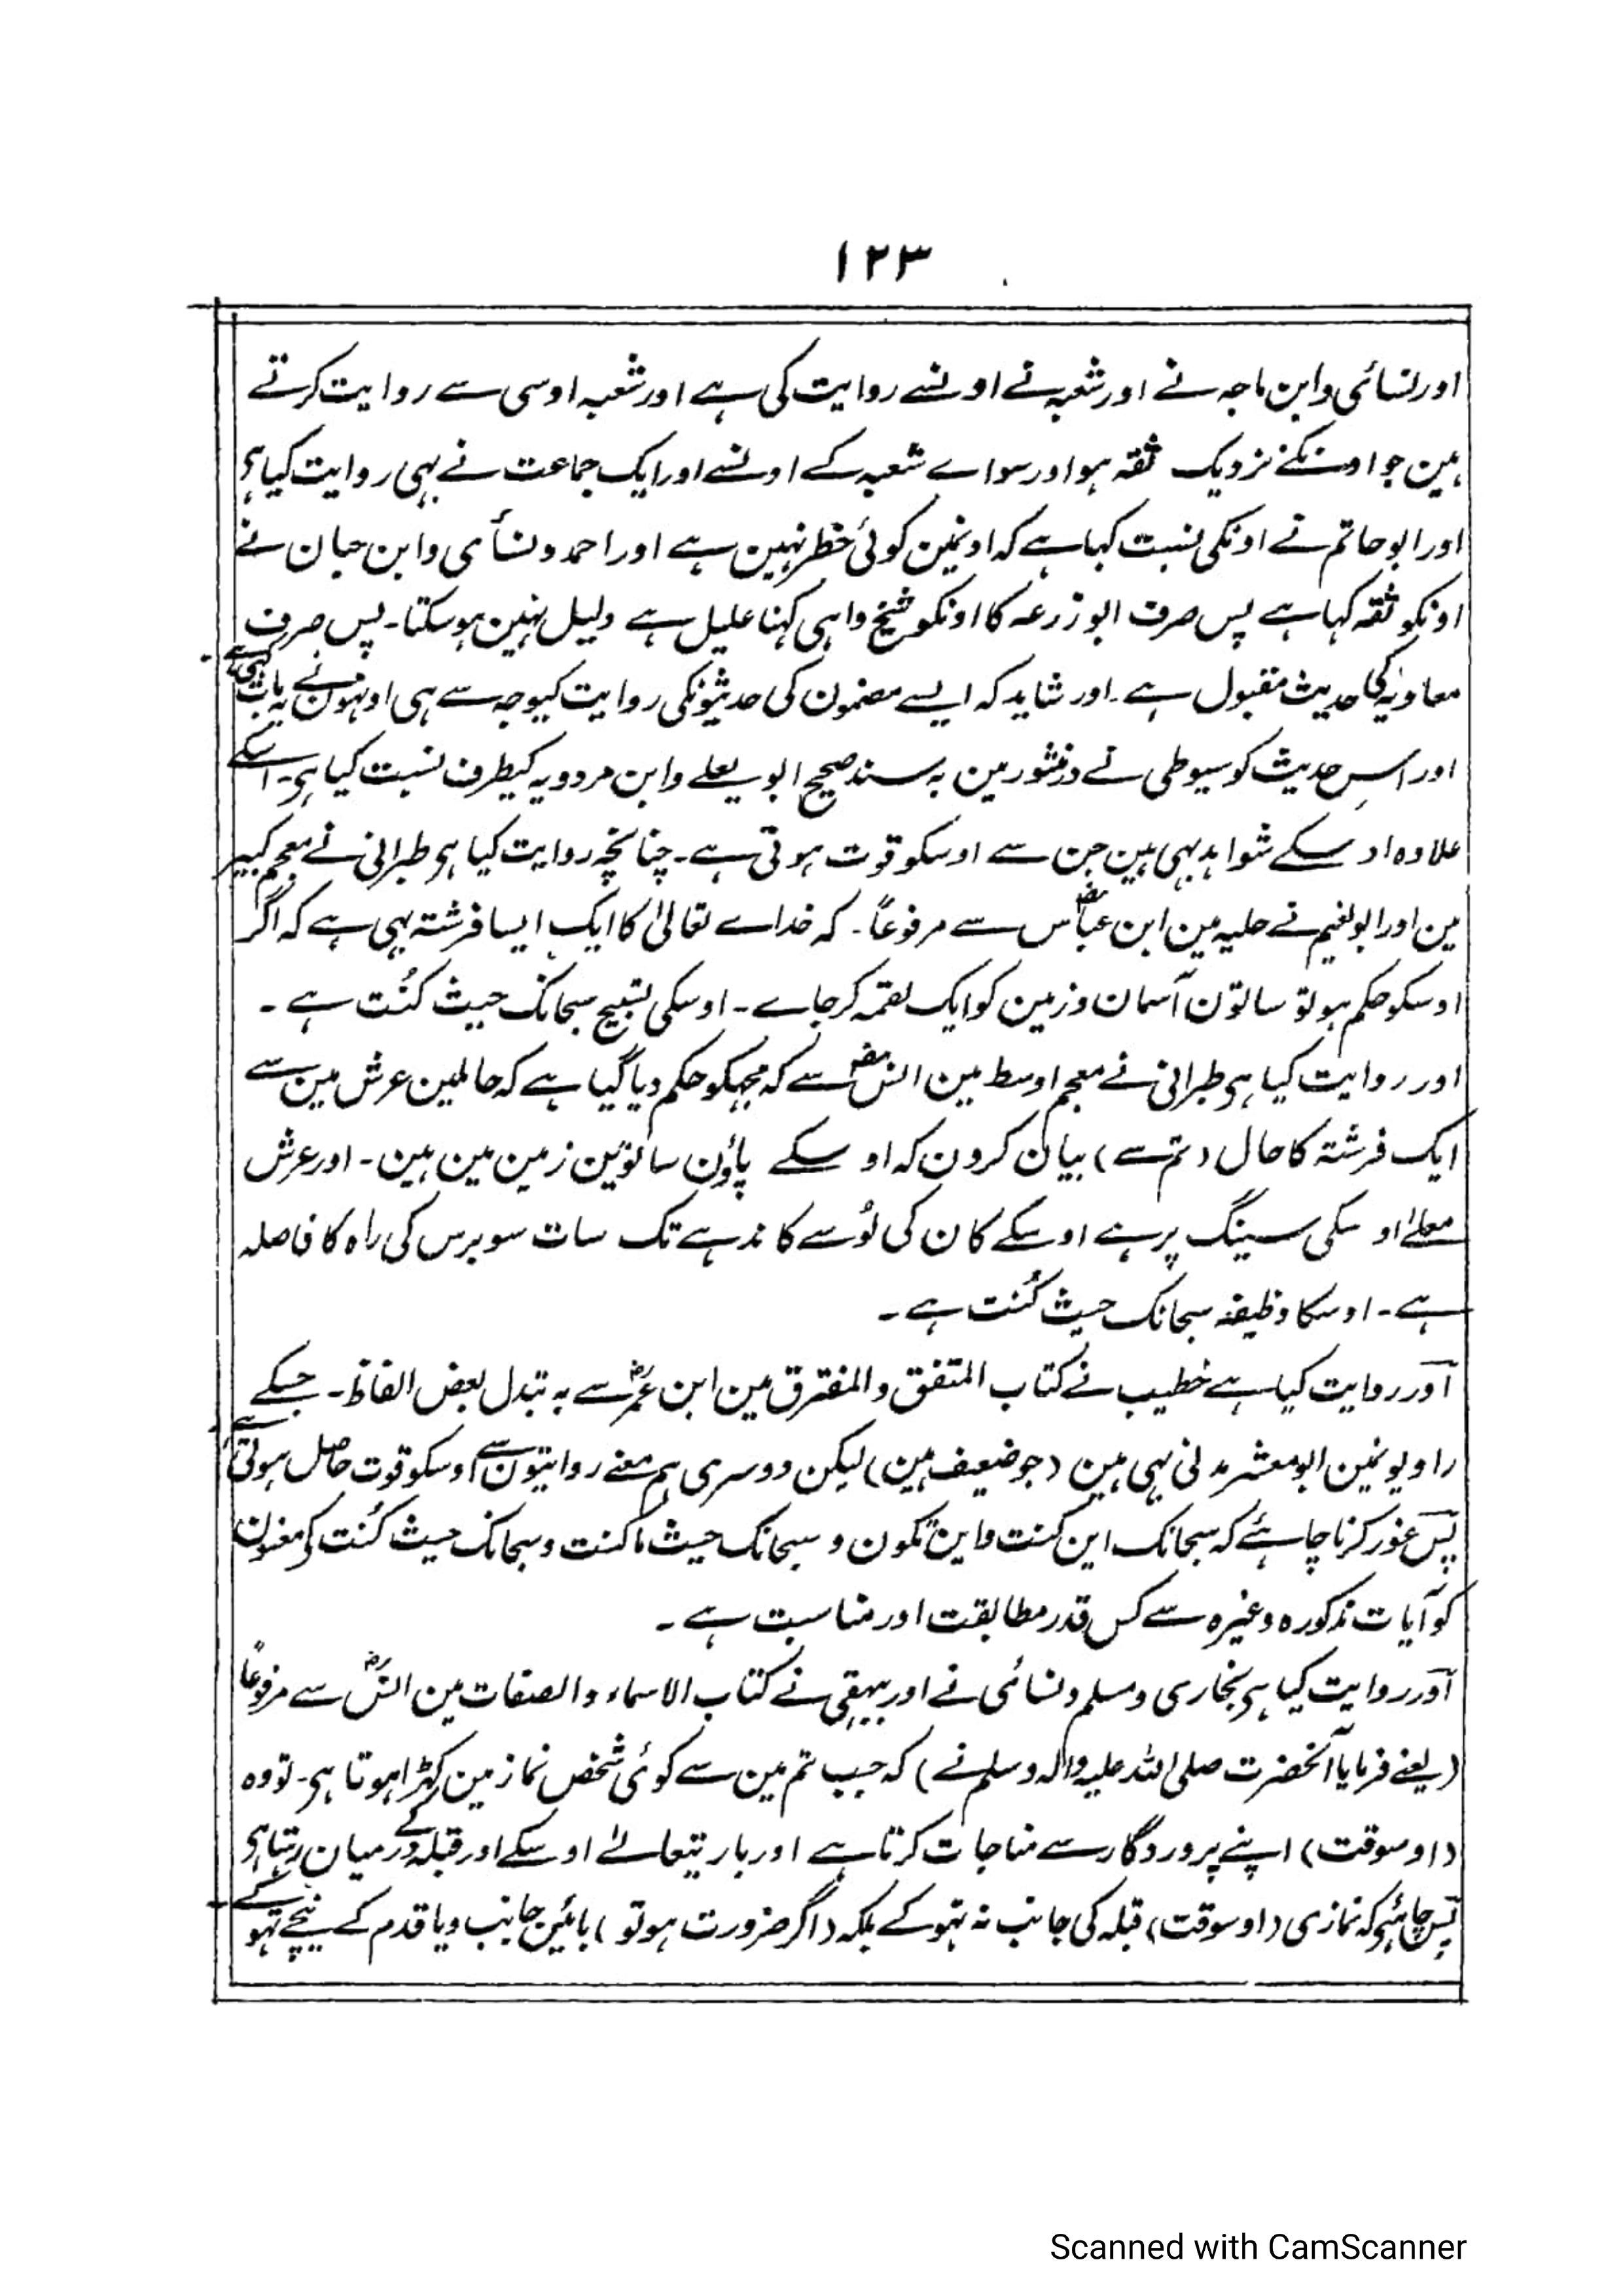 ۱۲۳
اور نسائی و ابن ماجہ نے اور شعبہ نے اونسے روایت کی ہے اور شعبہ اوسی سے روایت کرتے
ہین جو اونکے نزدیک ثقہ ہو اور سواے شعبہ کے اونسے اور ایک جماعت نے بہی روایت کیا ہے
اور ابو حاتم نے اونکی نسبت کہا ہے کہ اونمین کوئی خطر نہین ہے اور احمد و نسائی و ابن حبان نے
اونکو ثقہ کہا ہے پس صرف ابو زرعہ کا اونکو شیخ واہی کہنا علیل ہے دلیل نہین ہوسکتا۔ پس صرف
معاویہ کی حدیث مقبول ہے۔ اور شاید کہ ایسے مضمون کی حدیثونکی روایت کیوجہ سے ہی اونہون نے یہ بات کہی ہے۔
اور اس حدیث کو سیوطی نے درمنثور مین بہ سند صحیح ابو یعلے و ابن مردویہ کیطرف نسبت کیا ہی۔ اسکے
علاوہ اوسکے شواہد بہی ہین جن سے اوسکو قوت ہوتی ہے۔ چنانچہ روایت کیا ہی طبرانی نے معجم کبیر
مین اور ابو نعیم نے حلیہ مین ابن عباسؓ سے مرفوعاً۔ کہ خداے تعالیٰ کا ایک ایسا فرشتہ بہی ہے کہ اگر
اوسکو حکم ہو تو ساتون آسمان و زمین کو ایک لقمہ کر جاے۔ اوسکی تسبیح سبحانک حیث کُنت ہے۔
اور روایت کیا ہی طبرانی نے معجم اوسط مین انسؓ سے کہ مجہکو حکم دیا گیا ہے کہ حاملین عرش مین سے
ایک فرشتہ کا حال (تم سے) بیان کرون کہ اوسکے پاؤن ساتوین زمین مین ہین۔ اور عرش
معلےٰ اوسکی سینگ پر ہے اوسکے کان کی لَو سے کاندہے تک سات سو برس کی راہ کا فاصلہ
ہے۔ اوسکا وظیفہ سبحانک حیث کُنت ہے۔
اور روایت کیا ہے خطیب نے کتاب المتفق والمفترق مین ابن عمرؓ سے بہ تبدل بعض الفاظ۔ جسکے
راویونمین ابو معشر مدنی بہی ہین (جو ضعیف ہین) لیکن دوسری ہم معنے روایتون سے اوسکو قوت حاصل ہوتی ہے
پس غور کرنا چاہئے کہ سبحانک این کنت و این تکون و سبحانک حیث ما کنت و سبحانک حیث کُنت کے مضمون
کو آیات مذکورہ وغیرہ سے کس قدر مطابقت اور مناسبت ہے۔
اور روایت کیا ہی بخاری و مسلم و نسائی نے اور بیہقی نے کتاب الاسماء والصفات مین انسؓ سے مرفوعاً
(یعنے فرمایا آنحضرت صلی اللہ علیہ وآلہ وسلم نے) کہ جب تم مین سے کوئی شخص نماز مین کہڑا ہوتا ہی۔ تو وہ
(اوسوقت) اپنے پروردگار سے مناجات کرتا ہے اور باریتعالےٰ اوسکے اور قبلہ کے درمیان رہتا ہی
پس چاہئے کہ نمازی (اوسوقت) قبلہ کی جانب نہ تہوکے بلکہ (اگر ضرورت ہو تو) بائین جانب و یا قدم کے نیچے تہوکے
Scanned with CamScanner